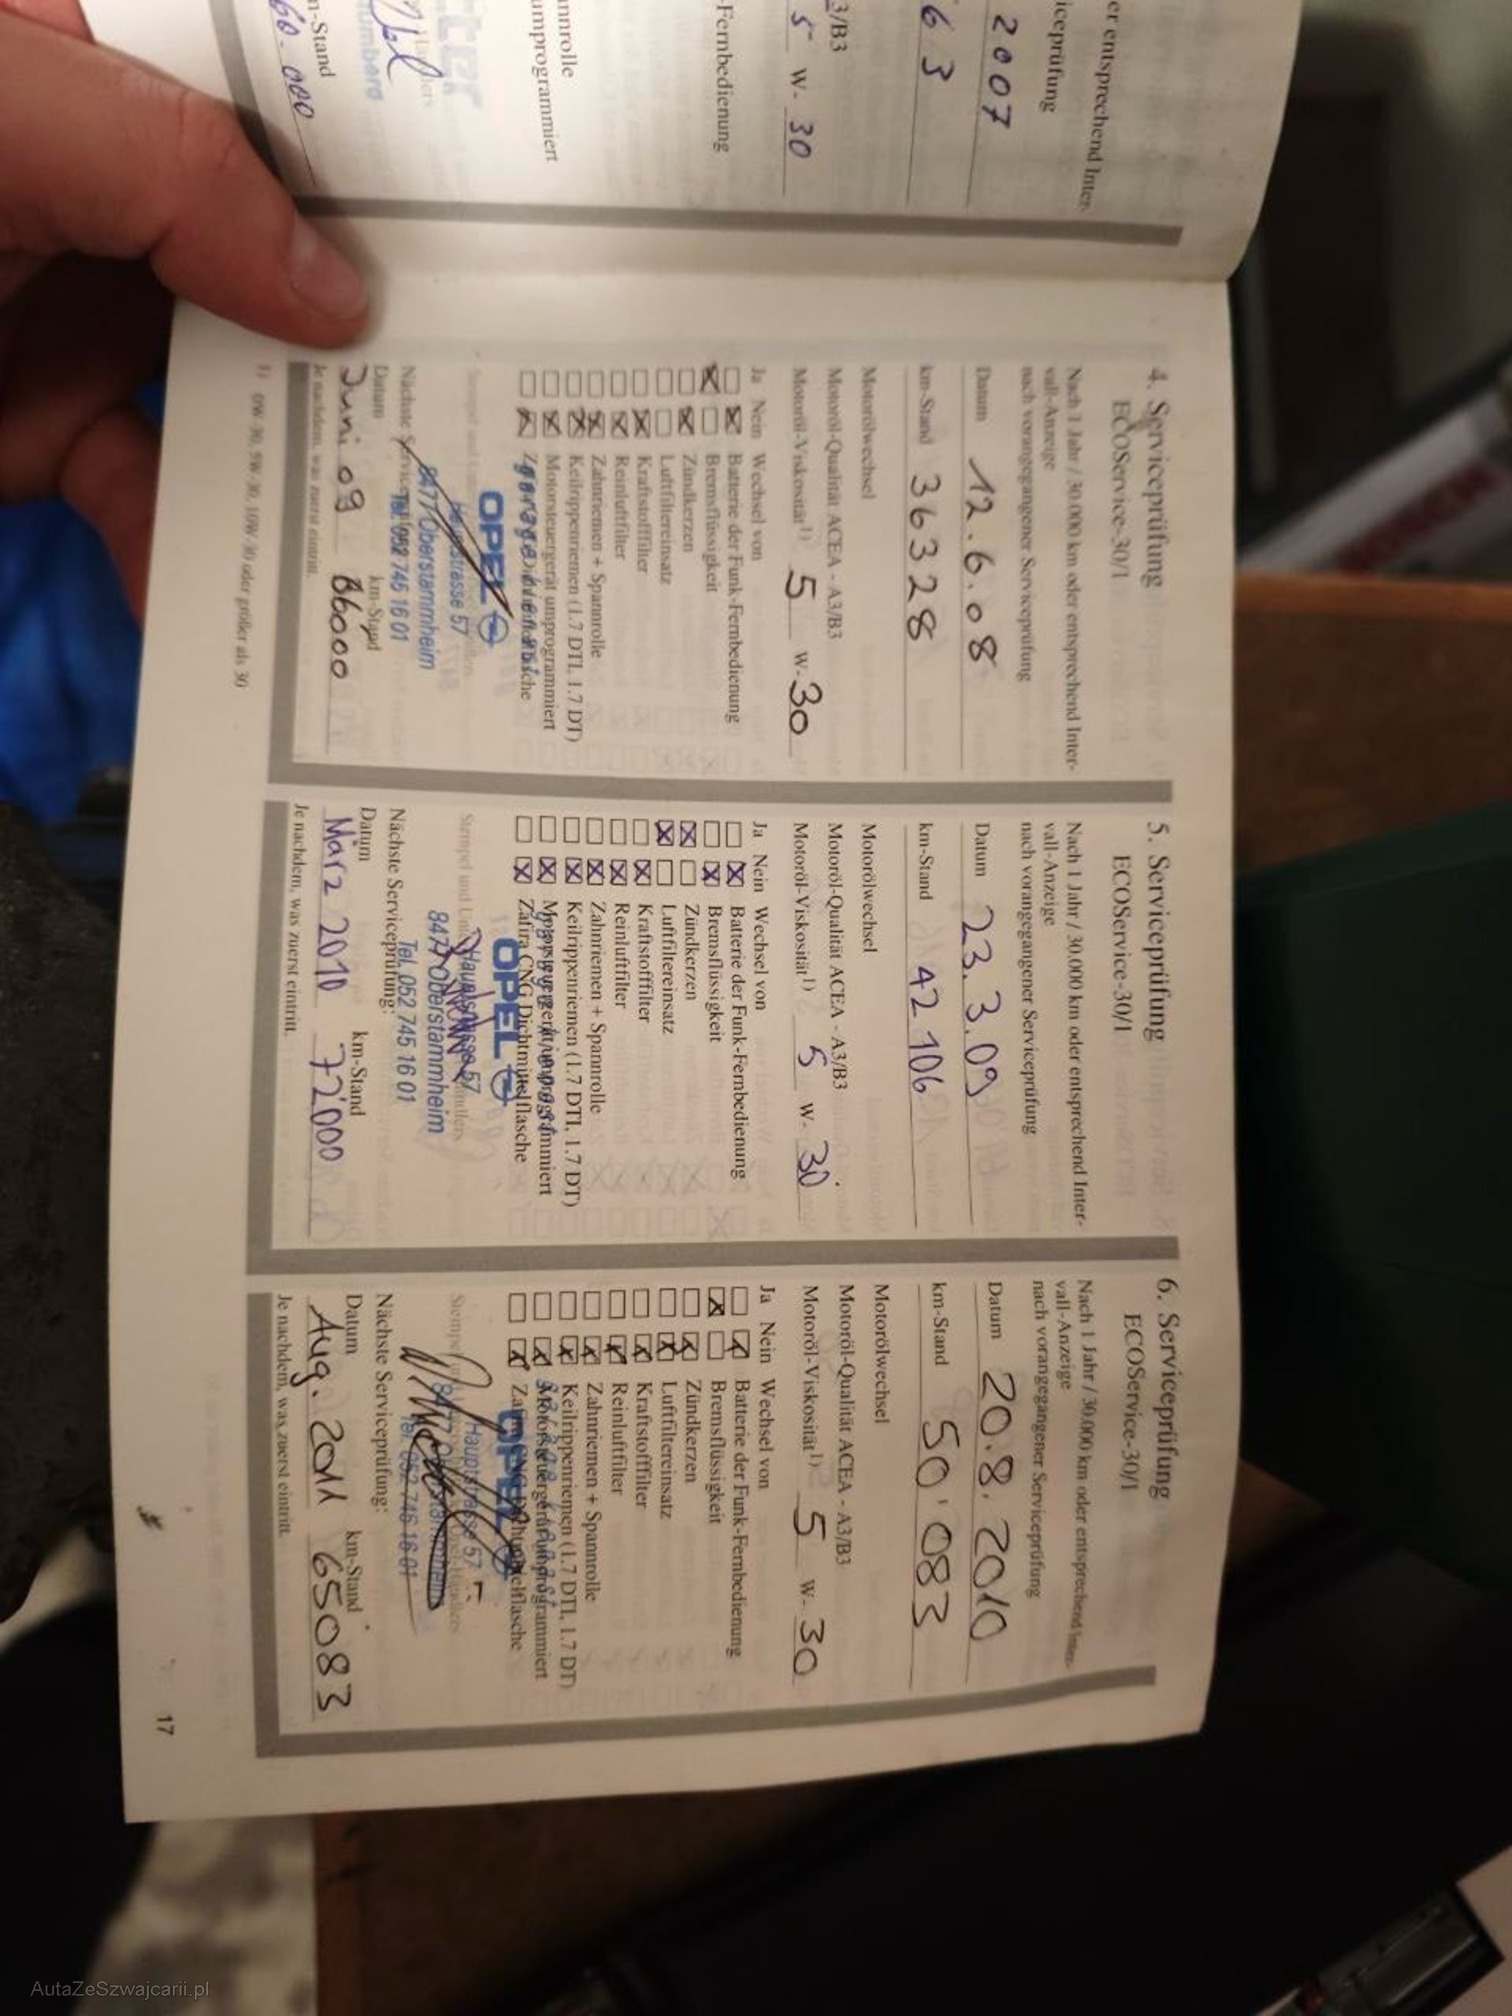 er entsprechend Inter-
iceprüfung
2007
63
3/B3
5 W- 30
-Fernbedienung
nnrolle
umprogrammiert
n-Stand
60.000
4. Serviceprüfung
ECOService-30/1
Nach 1 Jahr / 30.000 km oder entsprechend Inter-
vall-Anzeige
nach vorangegangener Serviceprüfung
Datum 12.6.08
km-Stand 36328
Motorölwechsel
Motoröl-Qualität ACEA - A3/B3
Motoröl-Viskosität1) 5 W- 30
Ja Nein Wechsel von
Batterie der Funk-Fernbedienung
Bremsflüssigkeit
Zündkerzen
Luftfiltereinsatz
Kraftstofffilter
Reinluftfilter
Zahnriemen + Spannrolle
Keilrippenriemen (1.7 DTI, 1.7 DT)
Motorsteuergerät umprogrammiert
OPEL
8477 Oberstammheim
Tel. 052 745 16 01
Nächste
Datum km-Stand
Juni 09 66000
Je nachdem, was zuerst eintritt.
1) 0W-30, 5W-30, 10W-30 oder größer als 30
5. Serviceprüfung
ECOService-30/1
Nach 1 Jahr / 30.000 km oder entsprechend Inter-
vall-Anzeige
nach vorangegangener Serviceprüfung
Datum 23.3.09
km-Stand 42106
Motorölwechsel
Motoröl-Qualität ACEA - A3/B3
Motoröl-Viskosität1) 5 W- 30
Ja Nein Wechsel von
Batterie der Funk-Fernbedienung
Bremsflüssigkeit
Zündkerzen
Luftfiltereinsatz
Kraftstofffilter
Reinluftfilter
Zahnriemen + Spannrolle
Keilrippenriemen (1.7 DTI, 1.7 DT)
Motorsteuergerät umprogrammiert
Zafira CNG Dichtmittelflasche
OPEL
Hauptstrasse 57
8477 Oberstammheim
Tel. 052 745 16 01
Nächste Serviceprüfung:
Datum km-Stand
März 2010 72'000
Je nachdem, was zuerst eintritt.
6. Serviceprüfung
ECOService-30/1
Nach 1 Jahr / 30.000 km oder entsprechend Inter-
vall-Anzeige
nach vorangegangener Serviceprüfung
Datum 20.8.2010
km-Stand 50'083
Motorölwechsel
Motoröl-Qualität ACEA - A3/B3
Motoröl-Viskosität1) 5 W- 30
Ja Nein Wechsel von
Batterie der Funk-Fernbedienung
Bremsflüssigkeit
Zündkerzen
Luftfiltereinsatz
Kraftstofffilter
Reinluftfilter
Zahnriemen + Spannrolle
Keilrippenriemen (1.7 DTI, 1.7 DT)
Motorsteuergerät umprogrammiert
Zafira CNG Dichtmittelflasche
OPEL
Hauptstrasse 57
8477 Oberstammheim
Tel. 052 745 16 01
Nächste Serviceprüfung:
Datum km-Stand
Aug. 2011 65083
Je nachdem, was zuerst eintritt.
17
AutaZeSzwajcarii.pl